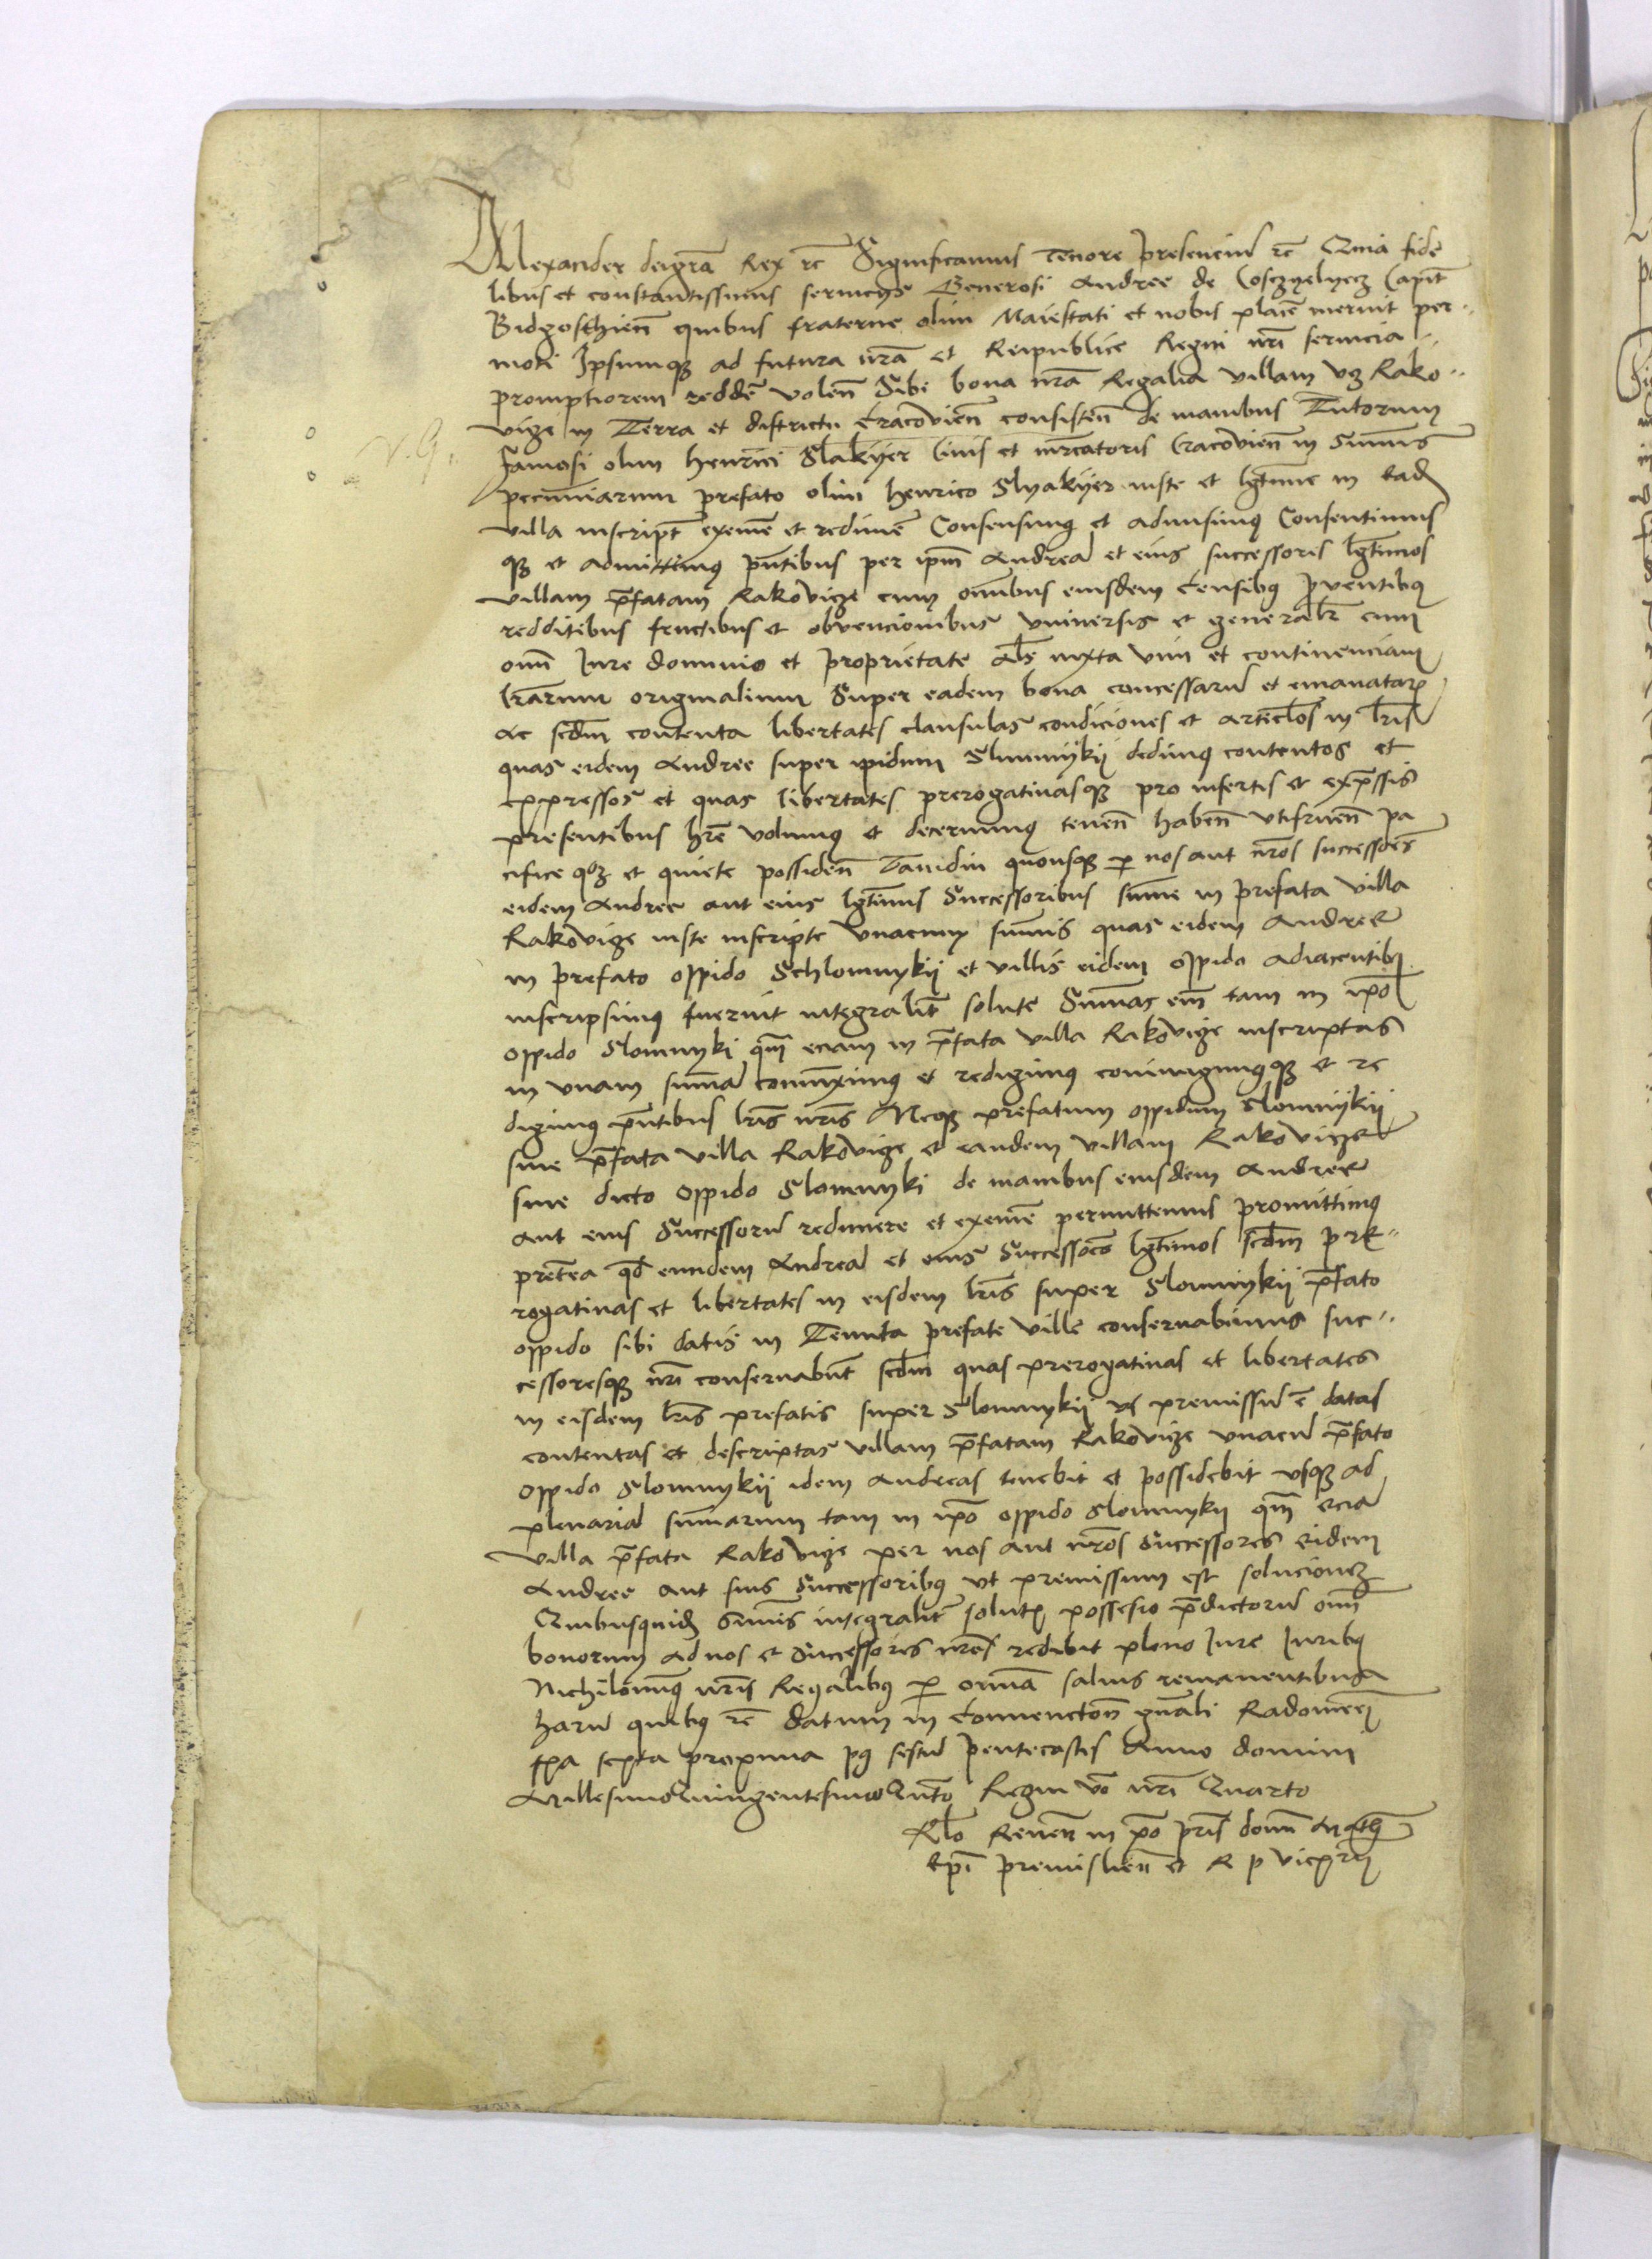 Allexander dei grã Rex rc̄ Significamus Tenore presenciũ rc̄ Quia fide
libus et constantissimis seruicys Generosi Andree de Cosczyelyecz Capit̃
Bidgosthieñ quibus fraterne olim Maiestati et nobis placẽ meruit per
moti Ipsumqꝫ ad futura nr̃a et Reipublice Regni nr̃i seruicia
promptiorem reddẽ voleñ Sibi bona nr̃a Regalia villam vꝫ Rako
vicze in Terra et districtu Cracovieñ consisteñ de manibus Tutorum
famosi olim Henrici Slakyer Ciuis et mr̃catoris Cracovieñ in summis
pecuniarum prefato olim Henrico Slyakyer iuste et lgt̃ime in ead
villa inscript̃ eximẽ et redimẽ Consensimꝯ et admisimꝯ Consentimus
qꝫ et admittimꝯ pñtibus per ipm̃ Andreã et eius successores lgt̃imos
villam p̃fatam Rakovicze cum omnibus eiusdem Censibꝯ prouentibꝯ
redditibus fructibus et obvencionibus vniuersis et generalr̃ cum
omñ Iure dominio et proprietate Alŝ iuxta vim et continenciam
lr̃arum originalium Super eadem bona concessarũ et emanatarꝝ
Ac scd̃m contenta libertates clausulas condiciones et articlos in lr̃is
quas eidem Andree super ipidum Slumnykij dedimꝯ contentos et
expressos et quas libertates prerogatiuasqꝫ pro insertis et exp̃ssis
presentibus hr̃e volumꝯ et decernimꝯ teneñ habeñ vtifrueñ pa
cifice qꝫ et quiete possideñ Tamdiu quousqꝫ p nos aut nr̃os successores
eidem Andree aut eius lgt̃imis Successoribus sum̃e in prefata villa
Rakovicze iuste inscripte vnacum summis quas eidem Andree
in prefato oppido Schlomnykij et villis eidem oppido adiacentibꝯ
inscripsimꝯ fuerint integralit̃ solute Summas em̃ tam in ip̃o
oppido Slomnyki qm̃ eciam in p̃fata villa Rakovicze inscriptas
in vnam summã coniunximꝯ et redigimꝯ coniungimꝯqꝫ et re
digimꝯ p̃ntibus lr̃is nr̃is Necqꝫ prefatum oppidum Slomnykij
sine p̃fata villa Rakovicze et eandem villam Rakovicze
sine dicto oppido Slomnyki de manibus eiusdem Andree
aut eius Successorũ redimere et eximẽ permittemus promittimꝯ
pretẽa qd̃ eundem Andreã et eius Successores lgt̃imos scd̃m pre
rogatiuas et libertates in eisdem lr̃is super Slomnykij p̃fato
oppido sibi datis in Tenuta prefate ville conseruabimus suc
cessoresqꝫ nr̃i conseruabũt scd̃m quas prerogatiuas et libertates
in eisdem lr̃is prefatis super Slomnykij vt premissũ ẽ datas
contentas et descriptas villam p̃fatam Rakovicze vnacũ p̃fato
oppido Slomnykij idem Andreas tenebit et possidebit vsqꝫ ad
plenariã summarum tam in ip̃o oppido Slomnykij qm̃ eciã
villa p̃fata Rakovicze per nos aut nr̃os Successores eidem
Andree aut suis Successoribꝯ vt premissum est solucionẽ
Quibusquidꝫ sum̃is integralit̃ solutꝭ possesio p̃dictorũ omñ
bonorum ad nos et Successores nr̃os redibit pleno Iure Iuribꝯ
Nichilominꝯ nr̃is Regalibꝯ p omnia saluis remanentibus
Harũ quibꝯ rc̄ datum in Conuencioñ gñali Radomieñ
fr̃ia sexta proxima pꝯ festũ Pentecostes Anno domini
Millesimo Quingentesimo Quĩto Regni vo nr̃i Quarto
Rlo Reueñ in xp̃o pr̃is domĩ Mathie
Epĩ Premislieñ et R p vicecan̄